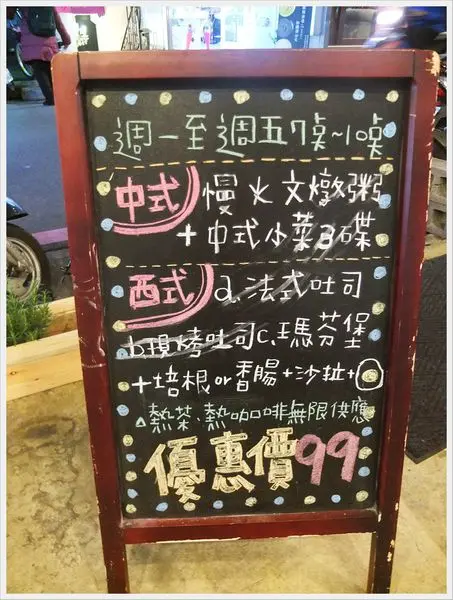 週一至週五7點~10點
中式 慢火文燉粥
+中式小菜3碟
西式 a.法式吐司
b.現烤吐司c.瑪芬堡
+培根or香腸+沙拉+
△熱茶、熱咖啡無限供應
優惠價99